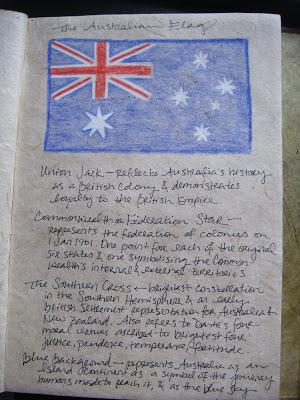 The Australian Flag
Union Jack – reflects Australia's history
as a British Colony & demonstrates
loyalty to the British Empire
Commonwealth or Federation Star –
represents the federation of colonies on
1 Jan 1901. One point for each of the original
six states & one symbolising the Common-
wealth's internal & external territories
The Southern Cross – brightest constellation
in the Southern Hemisphere & an early
British Settlement representation for Australia &
New Zealand. Also refers to Dante's four
moral virtues ascribed to brightest four
justice, prudence, temperance, fortitude.
Blue Background – represents Australia as an
Island Continent & a symbol of the journey
humans made to reach it, & as the blue sky